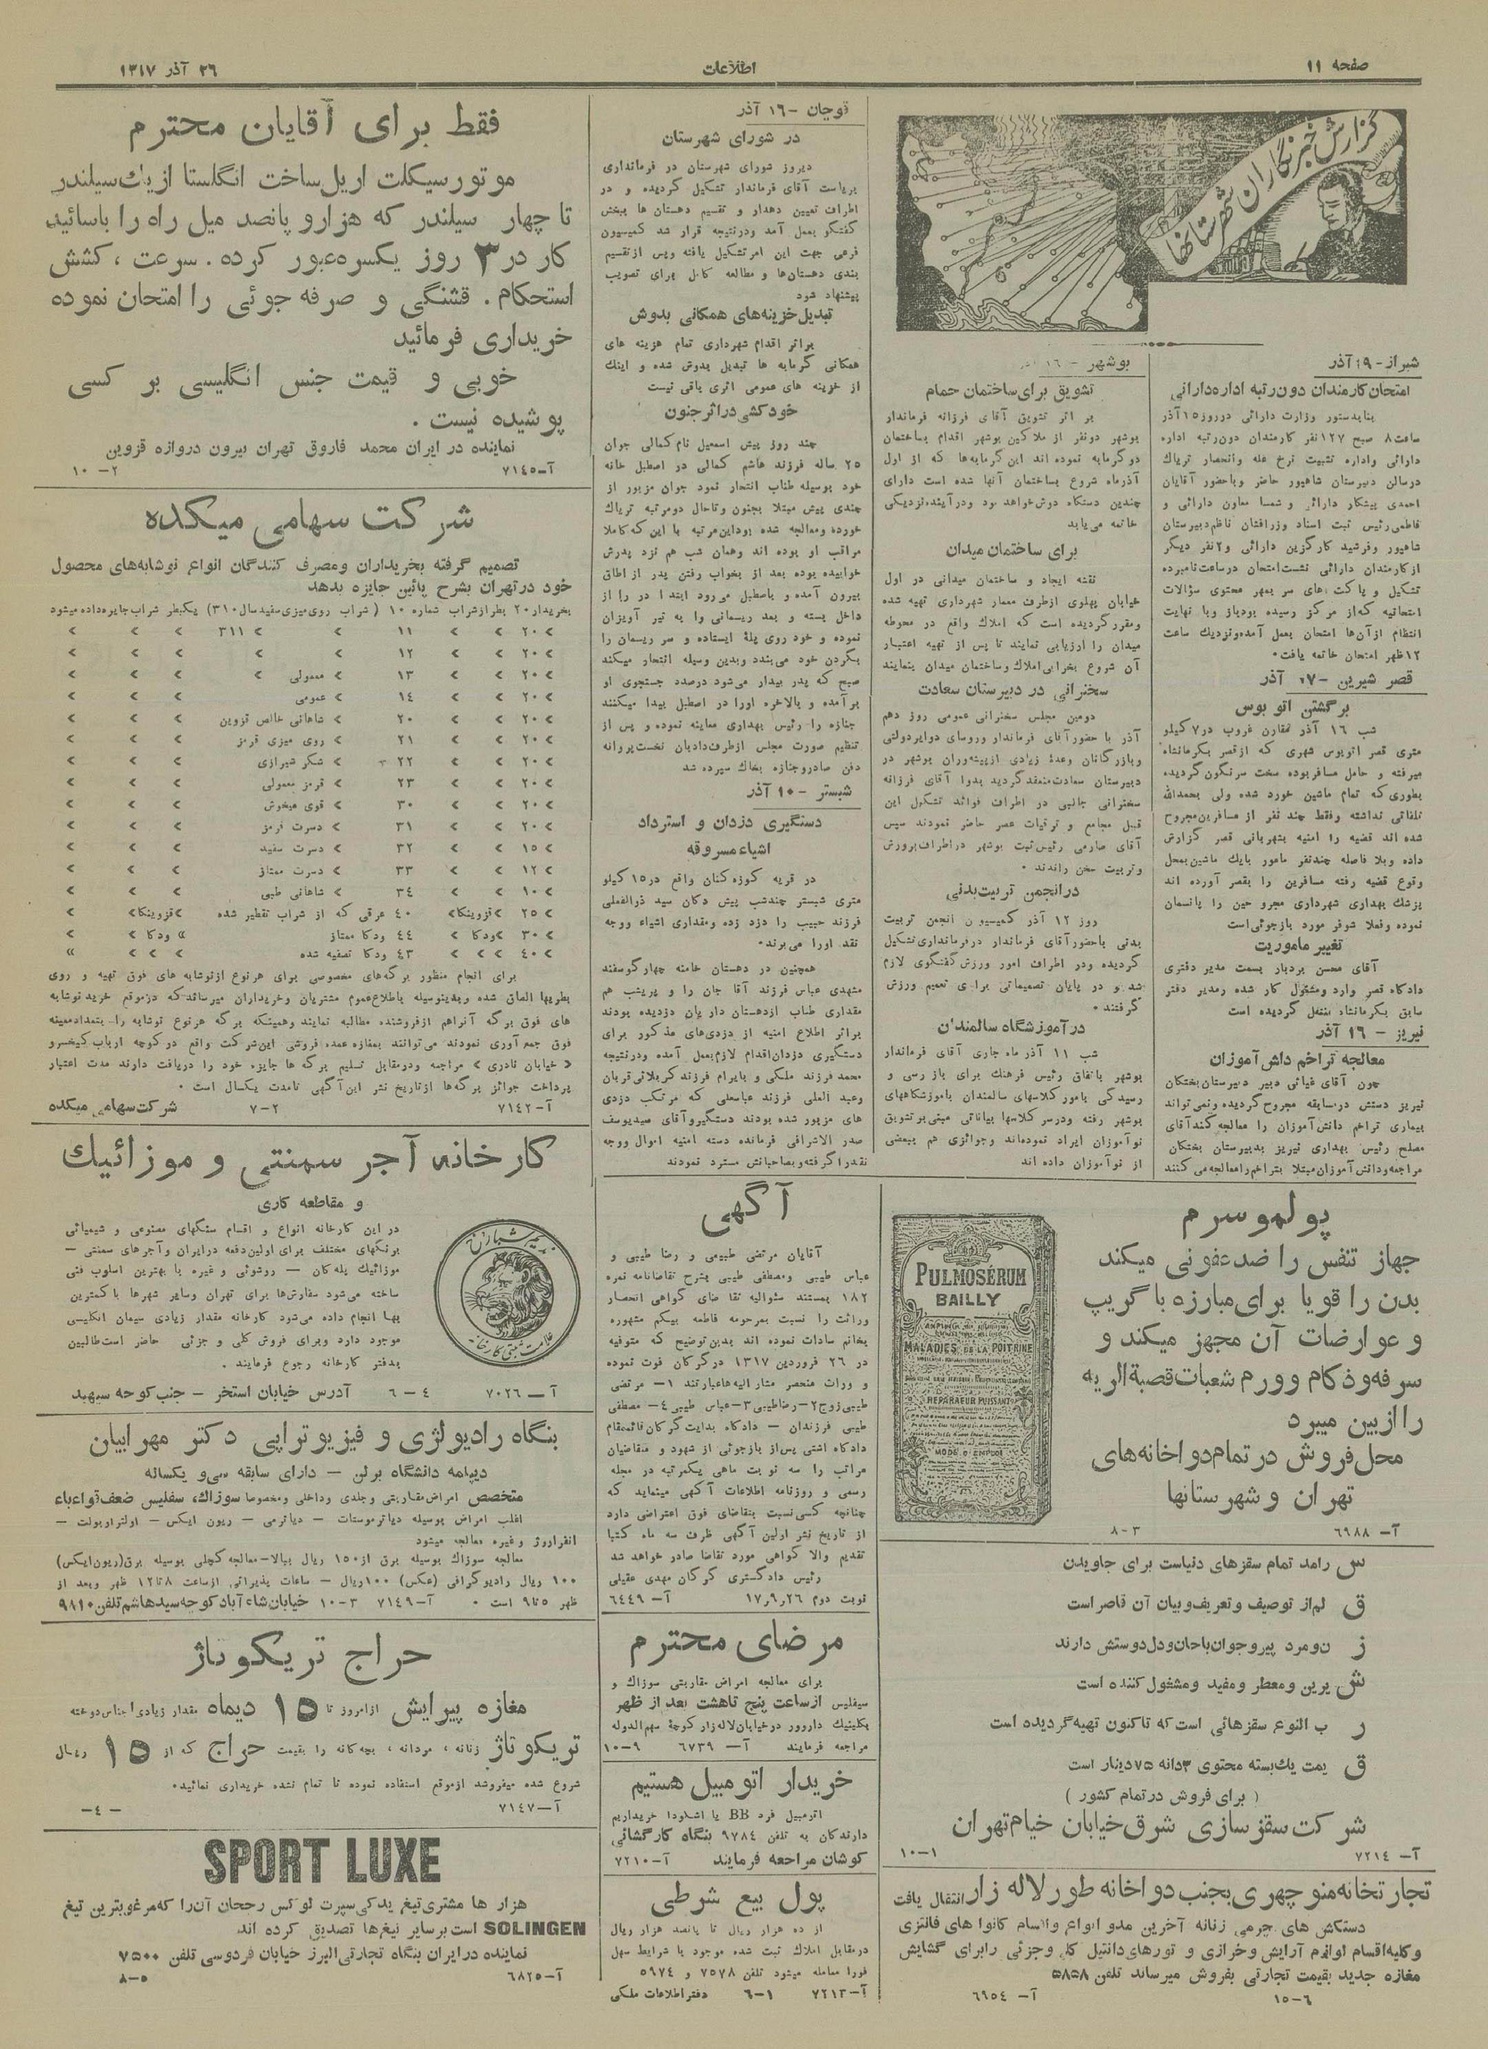 صفحه ۱۱
اطلاعات
۲۶ آذر ۱۳۱۷
گزارش خبرنگاران شهرستانها
شیراز - ۱۹ آذر
امتحان کارمندان دون‌رتبه اداره دارائی
بنابدستور وزارت دارائی در روز ۱۵ آذر
ساعت ۸ صبح ۱۲۷ نفر کارمندان دون‌رتبه اداره
دارائی واداره تثبیت نرخ غله وانحصار تریاك
درسالن دبیرستان شاهپور حاضر وباحضور آقایان
احمدی پیشکار دارائی و شمسا معاون دارائی و
فاطمی رئیس ثبت اسناد وزرافتان ناظم دبیرستان
شاهپور وفرشید کارگزین دارائی و۲ نفر دیگر
ازکارمندان دارائی نشست امتحان درساعت نامبرده
تشکیل و پاکت‌های سر بمهر محتوی سؤالات
امتحانیه که از مرکز رسیده بود باز وبا نهایت
انتظام ازآن‌ها امتحان بعمل آمده ونزدیك ساعت
۱۲ ظهر امتحان خاتمه یافت.
قصر شیرین - ۱۷ آذر
برگشتن اتو بوس
شب ۱۶ آذر مقارن غروب در ۷ کیلو
متری قصر اتوبوس شهری که ازقصر بکرمانشاه
میرفته و حامل مسافر بوده سخت سرنگون گردیده
بطوری که تمام ماشین خورد شده ولی بحمدالله
تلفاتی نداشته وفقط چند نفر از مسافرین مجروح
شده اند قضیه را امنیه بشهربانی قصر گزارش
داده وبلا فاصله چندنفر مامور بایك ماشین بمحل
وقوع قضیه رفته مسافرین را بقصر آورده اند
پزشك بهداری شهرداری مجرو حین را پانسمان
نموده وفعلا شوفر مورد بازجوئی است
تغییر ماموریت
آقای محسن بردبار بسمت مدیر دفتری
دادگاه قصر وارد ومشغول کار شده ومدیر دفتر
سابق بکرمانشاه منتقل گردیده است
نیریز - ۱۶ آذر
معالجه تراخم دانش آموزان
چون آقای فیاثی دبیر دبیرستان بختگان
نیریز دستش درسابقه مجروح گردیده ونمی‌تواند
بیماری تراخم دانش‌آموزان را معالجه کند آقای
مصلح رئیس بهداری نیریز بدبیرستان بختگان
مراجعه ودانش آموزان مبتلا بتراخم را معالجه می کنند
بوشهر - ۱۶
تشویق برای ساختمان حمام
بر اثر تشویق آقای فرزانه فرماندار
بوشهر دونفر از ملاکین بوشهر اقدام بساختمان
دو گرمابه نموده اند این گرمابه‌ها که از اول
آذرماه شروع بساختمان آنها شده است دارای
چندین دستگاه دوش خواهد بود ودرآینده نزدیکی
خاتمه می‌یابد
برای ساختمان میدان
نقشه ایجاد و ساختمان میدانی در اول
خیابان پهلوی ازطرف معمار شهرداری تهیه شده
ومقرر گردیده است که املاك واقع در محوطه
میدان را ارزیابی نمایند تا پس از تهیه اعتبار
آن شروع بخرابی املاك وساختمان میدان بنمایند
سخنرانی در دبیرستان سعادت
دومین مجلس سخنرانی عمومی روز دهم
آذر با حضور آقای فرماندار وروسای دوایردولتی
وبازرگانان وعدهٔ زیادی ازپیشه‌وران بوشهر در
دبیرستان سعادت منعقد گردید بدوا آقای فرزانه
سخنرانی جالبی در اطراف فوائد تشکیل این
قبیل مجامع و ترقیات عصر حاضر نمودند سپس
آقای صارمی رئیس ثبت بوشهر دراطراف پرورش
وتربیت سخن راندند.
درانجمن تربیت بدنی
روز ۱۲ آذر کمیسیون انجمن تربیت
بدنی باحضور آقای فرماندار درفرمانداری تشکیل
گردیده ودر اطراف امور ورزش گفتگوی لازم
شد و در پایان تصمیماتی برای تعمیم ورزش
گرفتند.
در آموزشگاه سالمندان
شب ۱۱ آذر ماه جاری آقای فرماندار
بوشهر باتفاق رئیس فرهنك برای باز رسی و
رسیدگی بامور کلاسهای سالمندان بآموزشگاههای
بوشهر رفته ودرسر کلاسها بیاناتی مبنی بر تشویق
نوآموزان ایراد نموده‌اند وجوائزی هم ببعضی
از نوآموزان داده اند
قوچان - ۱۶ آذر
در شورای شهرستان
دیروز شورای شهرستان در فرمانداری
بریاست آقای فرماندار تشکیل گردیده و در
اطراف تعیین دهدار و تقسیم دهستان ها ببخش
گفتگو بعمل آمد ودرنتیجه قرار شد کمیسیون
فرعی جهت این امر تشکیل یافته وپس ازتقسیم
بندی دهستان‌ها و مطالعه کامل برای تصویب
پیشنهاد شود
تبدیل خزینه‌های همگانی بدوش
براثر اقدام شهرداری تمام خزینه های
همگانی گرمابه ها تبدیل بدوش شده و اینك
از خزینه های عمومی اثری باقی نیست
خودکشی در اثر جنون
چند روز پیش اسمعیل نام کمالی جوان
۲۵ ساله فرزند هاشم کمالی در اصطبل خانه
خود بوسیله طناب انتحار نمود جوان مزبور از
چندی پیش مبتلا بجنون وتاحال دومرتبه تریاك
خورده ومعالجه شده بود این مرتبه با این که کاملا
مراقب او بوده اند وهمان شب هم نزد پدرش
خوابیده بوده بعد از بخواب رفتن پدر از اطاق
بیرون آمده و باصطبل می‌رود ابتدا در را از
داخل بسته و بعد ریسمانی را به تیر آویزان
نموده و خود روی پلهٔ ایستاده و سر ریسمان را
بگردن خود می‌بندد وبدین وسیله انتحار میکند
صبح که پدر بیدار می‌شود درصدد جستجوی او
برآمده و بالاخره اورا در اصطبل پیدا میکنند
جنازه را رئیس بهداری معاینه نموده و پس از
تنظیم صورت مجلس ازطرف دادیان نخست پروانه
دفن صادر و جنازه بخاك سپرده شد
شبستر - ۱۰ آذر
دستگیری دزدان و استرداد
اشیاء مسروقه
در قریه کوزه کنان واقع در ۱۵ کیلو
متری شبستر چندشب پیش دکان سید ذوالفعلی
فرزند حبیب را دزد زده ومقداری اشیاء ووجه
نقد اورا می‌برند.
همچنین در دهستان خامنه چهار گوسفند
مشهدی عباس فرزند آقا جان را و پریشب هم
مقداری طناب ازدهستان داریان دزدیده بودند
براثر اطلاع امنیه از دزدی‌های مذکور برای
دستگیری دزدان اقدام لازم بعمل آمده ودرنتیجه
محمد فرزند ملکی و بایرام فرزند کربلائی قربان
وعبد العلی فرزند عباسعلی که مرتکب دزدی
های مزبور شده بودند دستگیر و آقای سیدیوسف
صدر الاشرافی فرمانده دسته امنیه اموال ووجه
نقد را گرفته وبصاحبانش مسترد نمودند
فقط برای آقایان محترم
موتورسیکلت اریل ساخت انگلستا از یك سیلندر
تا چهار سیلندر که هزار و پانصد میل راه را باسائید
کار در ۳ روز یکسره عبور کرده. سرعت، کشش
استحکام. قشنگی و صرفه جوئی را امتحان نموده
خریداری فرمائید
خوبی و قیمت جنس انگلیسی بر کسی
پوشیده نیست.
نماینده در ایران محمد فاروق تهران بیرون دروازه قزوین
آ-۷۱۴۵ ۲- ۱۰
شرکت سهامی میکده
تصمیم گرفته بخریداران ومصرف کنندگان انواع نوشابه‌های محصول
خود در تهران بشرح پائین جایزه بدهد
بخریدار ۲۰ بطر ازشراب شماره ۱۰ (شراب روی میزی سفید سال ۳۱۰) یکبطر شراب جایزه داده میشود
> ۲۰ > > ۱۱ > > ۳۱۱ > > >
> ۲۰ > > ۱۲ > > > > >
> ۲۰ > > ۱۳ > معمولی > > > >
> ۲۰ > > ۱۴ > عمومی > > >
> ۲۰ > > ۲۰ > شاهانی خالص قزوین > > >
> ۲۰ > > ۲۱ > روی میزی قرمز > > >
> ۲۰ > > ۲۲ > شکر شیرازی > > >
> ۲۰ > > ۲۳ > قرمز معمولی > > >
> ۲۰ > > ۳۰ > قوی میخوش > > >
> ۲۰ > > ۳۱ > دسرت قرمز > > >
> ۱۵ > > ۳۲ > دسرت سفید > > >
> ۱۲ > > ۳۳ > دسرت ممتاز > > >
> ۱۰ > > ۳۴ > شاهانی طبی > > >
> ۲۵ >قزوینکا> ۴۰ عرقی که از شراب تقطیر شده >قزوینکا> >
> ۳۰ >ودکا > ۴۴ ودکا ممتاز » ودکا > >
> ۴۰ > > > ۴۳ ودکا تصفیه شده > > > »
برای انجام منظور برگه‌های مخصوصی برای هرنوع ازنوشابه های فوق تهیه و روی
بطریها الصاق شده وبدینوسیله باطلاع عموم مشتریان وخریداران میرساند که درموقع خرید نوشابه
های فوق برگه آنرا هم ازفروشنده مطالبه نمایند وهمینکه برگه هرنوع نوشابه را بتعداد معینه
فوق جمع‌آوری نمودند می‌توانند بمغازه عمده فروشی این شرکت واقع در کوچه ارباب کیخسرو
« خیابان نادری » مراجعه ودرمقابل تسلیم برگه ها جایزه خود را دریافت دارند مدت اعتبار
پرداخت جوائز برگه‌ها ازتاریخ نشر این آگهی تامدت یکسال است.
آ-۷۱۴۲ ۲-۷ شرکت سهامی میکده
کارخانه آجر سمنتی و موزائیك
و مقاطعه کاری
در این کارخانه انواع و اقسام سنگهای مصنوعی و شیمیائی
برنگهای مختلف برای اولین دفعه در ایران وآجرهای سمنتی -
موزائیك پله کان - روشوئی و غیره با بهترین اسلوب فنی
ساخته می‌شود سفارش‌ها برای تهران وسایر شهرها با کمترین
بها انجام داده می‌شود کارخانه مقدار زیادی سیمان انگلیسی
موجود دارد وبرای فروش کلی و جزئی حاضر است طالبین
بدفتر کارخانه رجوع فرمایند.
علامت ثبتی کارخانه
آ- ۷۰۲۶ ۴-۶ آدرس خیابان استخر - جنب کوچه سپهبد
بنگاه رادیولژی و فیزیوتراپی دکتر مهرابیان
دیپلمه دانشگاه برلن - دارای سابقه سی و یکساله
متخصص امراض مقاربتی وجلدی وداخلی ومخصوصا سوزاك، سفلیس ضعف قواء باء
اغلب امراض بوسیله دیاترموستات - دیاترمی - ریون ایکس - اولتراویولت -
انفراروژ وغیره معالجه میشود
معالجه سوزاك بوسیله برق از ۱۵۰ ریال ببالا - معالجه کچلی بوسیله برق (ریون ایکس)
۱۰۰ ریال رادیو گرافی (عکس) ۱۰۰ ریال - ساعات پذیرائی از ساعت ۸ تا ۱۲ ظهر وبعد از
ظهر ۵ تا ۹ است. آ-۷۱۴۹ ۳-۱۰ خیابان شاه آباد کوچه سیدهاشم تلفن ۹۸۱۰
حراج تریکوتاژ
مغازه پیرایش ازامروز تا ۱۵ دیماه مقدار زیادی اجناس دوخته
تریکوتاژ زنانه، مردانه، بچه گانه را بقیمت حراج که از ۱۵ ریال
شروع شده میفروشد ازموقع استفاده نموده تا تمام نشده خریداری نمائید.
آ-۷۱۴۷ -۴-
SPORT LUXE
هزار ها مشتری تیغ یدکی سپرت لوکس رجحان آن را که مرغوبترین تیغ
SOLINGEN است برسایر تیغ‌ها تصدیق کرده اند
نماینده در ایران بنگاه تجارتی البرز خیابان فردوسی تلفن ۷۵۰۰
آ-۶۸۲۵ ۵-۸
آگهی
آقایان مرتضی طبیبی و رضا طیبی و
عباس طیبی ومصطفی طیبی بشرح تقاضانامه نمره
۱۸۲ بمستند سئوالیه تقا ضای گواهی انحصار
وراثت را نسبت بمرحومه فاطمه بیگم مشهوره
بخانم سادات نموده اند بدین توضیح که متوفیه
در ۲۶ فروردین ۱۳۱۷ در گرگان فوت نموده
و وراث منحصر مشار الیه‌ها عبارتند ۱- مرتضی
طیبی زوج ۲- رضا طیبی ۳- عباس طیبی ۴- مصطفی
طیبی فرزندان - دادگاه بدایت گرگان قائم‌مقام
دادگاه اشتی پس‌از بازجوئی از شهود و متقاضیان
مراتب را سه نوبت ماهی یکمرتبه در مجله
رسمی و روزنامه اطلاعات آگهی مینماید که
چنانچه کسی نسبت بتقاضای فوق اعتراضی دارد
از تاریخ نشر اولین آگهی ظرف سه ماه کتبا
تقدیم والا گواهی مورد تقاضا صادر خواهد شد
رئیس دادگستری گرگان مهدی عقیلی
نوبت دوم ۱۷٫۹٫۲۶ آ- ۶۴۴۹
مرضای محترم
برای معالجه امراض مقاربتی سوزاك و
سیفلیس ازساعت پنج تاهشت بعد از ظهر
بکلینیك داررور در خیابان لاله زار کوچهٔ سهم‌الدوله
مراجعه فرمایند آ- ۶۷۳۹ ۹-۱۰
خریدار اتومبیل هستیم
اتومبیل فرد BB یا اشکودا خریداریم
دارندگان به تلفن ۹۷۸۴ بنگاه کارگشائی
کوشان مراجعه فرمایند آ-۷۲۱۰
پول بیع شرطی
از ده هزار ریال تا پانصد هزار ریال
درمقابل املاك ثبت شده موجود با شرایط سهل
فورا معامله میشود تلفن ۷۵۷۸ و ۵۹۷۴
آ-۷۲۱۳ ۱-۶ دفتر اطلاعات ملکی
پولموسرم
جهاز تنفس را ضدعفونی میکند
بدن را قویا برای مبارزه با گریپ
و عوارضات آن مجهز میکند و
سرفه وذکام وورم شعبات قصبةالریه
را ازبین میبرد
محل فروش در تمام دواخانه‌های
تهران و شهرستانها
آ- ۶۹۸۸ ۳-۸
PULMOSÉRUM
BAILLY
MALADIES DE LA POITRINE
RÉPARATEUR PUISSANT
MODE D'EMPLOI
س رامد تمام سقزهای دنیاست برای جاویدن
ق لم‌از توصیف وتعریف وبیان آن قاصر است
ز ن‌ومرد پیروجوان باجان‌ودل دوستش دارند
ش یرین ومعطر ومفید ومشغول کننده است
ر ب النوع سقزهائی است که تاکنون تهیه گردیده است
ق یمت یك‌بسته محتوی ۳ دانه ۷۵ دینار است
( برای فروش در تمام کشور )
شرکت سقزسازی شرق خیابان خیام تهران
آ- ۷۲۱۴ ۱-۱۰
تجارتخانه منوچهری بجنب دواخانه طور لاله زار انتقال یافت
دستکش های چرمی زنانه آخرین مدو انواع واقسام کانوا های فانتزی
وکلیه اقسام لوازم آرایش وخرازی و تورهای دانتیل کلی وجزئی را برای گشایش
مغازه جدید بقیمت تجارتی بفروش میرساند تلفن ۵۸۵۸
۶-۱۵ آ- ۶۹۵۴